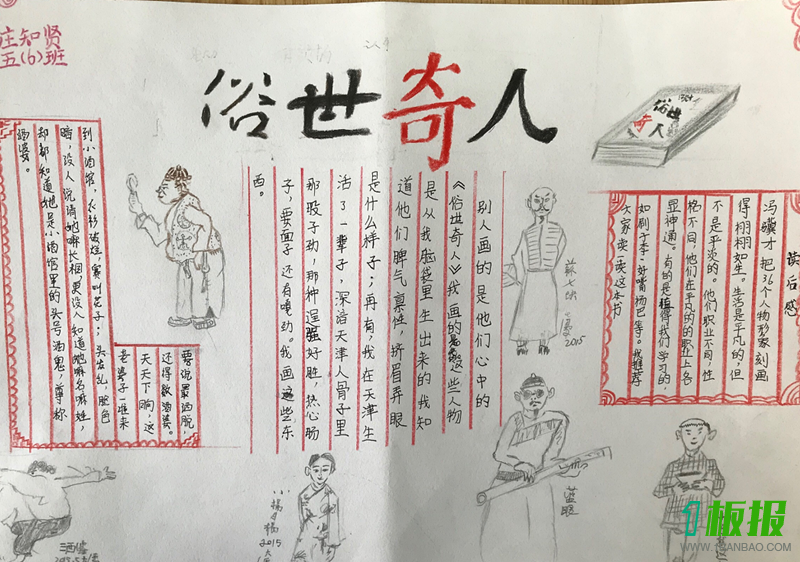 庄知贤
五(6)班
俗世奇人
俗世
奇人
读后感
冯骥才把36个人物形象刻画
得栩栩如生。生活是平凡的,但
不是平淡的。他们职业不同,性
格不同,他们在平凡的的职业上各
显神通。有的是值得我们学习的,
如刷子李、好嘴杨巴等。我推荐
大家读一读这本书
别人画的是他们心中的
《俗世奇人》我画的是这些人物
是从我脑袋里生出来的我知
道他们脾气禀性,挤眉弄眼
是什么样子;再有,我在天津生
活了一辈子,深谙天津人骨子里
那股子劲,那种逞强好胜,热心肠
子,要面子还有嘎劲。我画这些东
西。
要说最洒脱,
还得数酒婆。
天天下晌,这
老婆子一准来
到小酒馆,衣衫破烂,赛叫花子;头发乱,脸色
暗,没人说清她嘛长相,更没人知道她嘛名嘛姓,
却都知道她是小酒馆里的头号酒鬼,尊称
酒婆。
苏七块
2015
蓝眼
小杨月楼
2015
酒婆
1板报
WWW.1BANBAO.COM